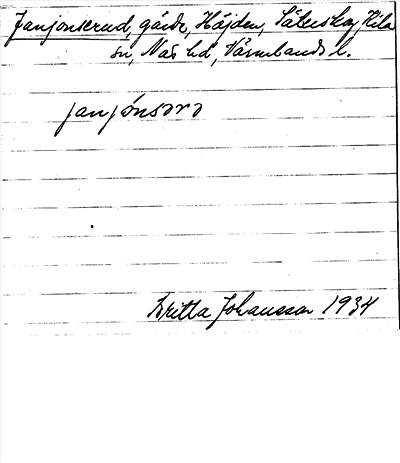 Janjonserud, gård, Höjden, Säterskog, Kila
sn, Näs hd, Värmlands l.
janjónsərə
Britta Johansson 1934